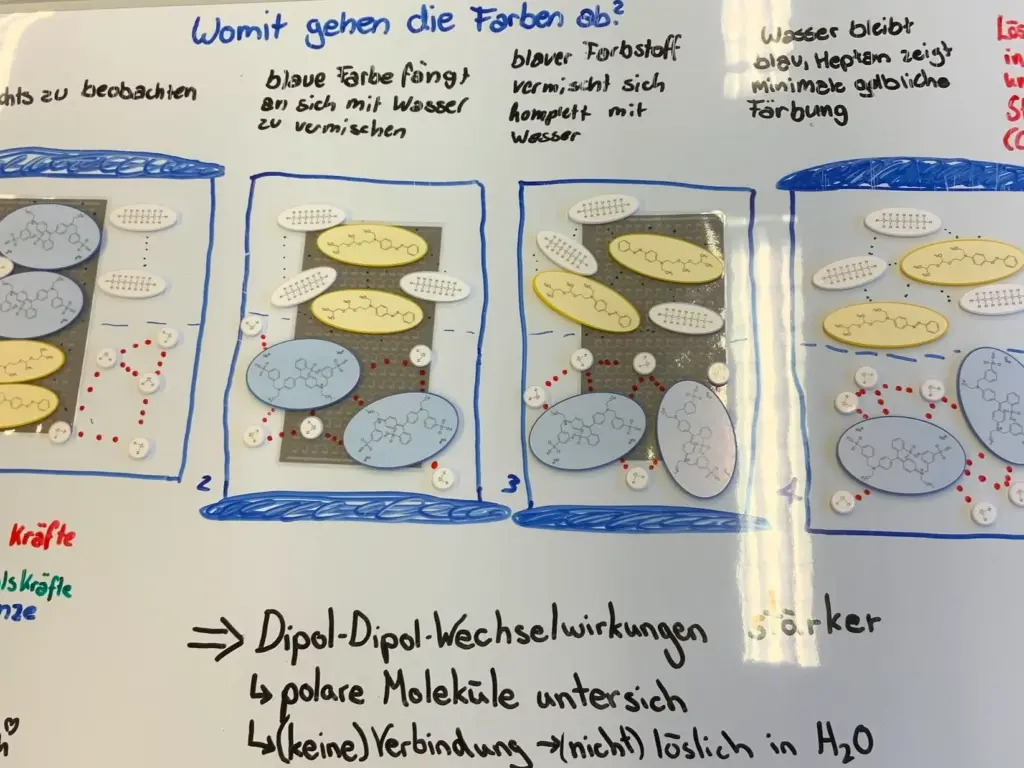 Womit gehen die Farben ab?
chts zu beobachten
blaue Farbe fängt
an sich mit Wasser
zu vermischen
blauer Farbstoff
vermischt sich
komplett mit
Wasser
Wasser bleibt
blau, Heptan zeigt
minimale gelbliche
Färbung
Lös
in
St
2
3
4
Kräfte
lskräfte
nze
⇒ Dipol-Dipol-Wechselwirkungen stärker
↳ polare Moleküle untersich
↳ (keine) Verbindung → (nicht) löslich in H₂O